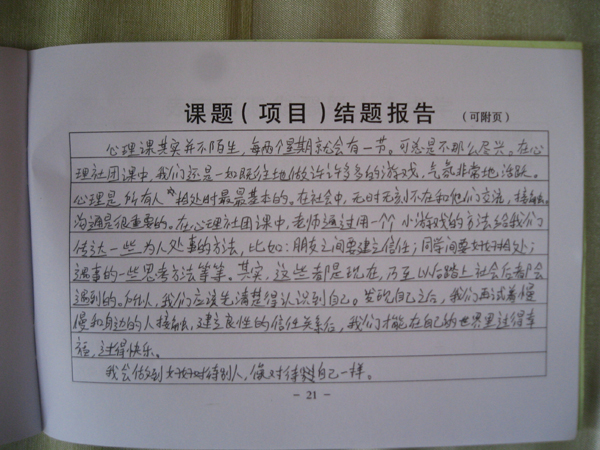 课题（项目）结题报告 （可附页）
心理课其实并不陌生，每两个星期就会有一节。可总是不那么尽兴。在心
理社团课中，我们还是一如既往地做许许多多的游戏，气氛非常地活跃。
心理是所有人相处时最最基本的。在社会中，无时无刻不在和他们交流，接触。
沟通是很重要的。在心理社团课中，老师通过用一个个小游戏的方法给我们
传达一些为人处事的方法，比如：朋友之间要建立信任；同学间要好好相处；
遇事的一些思考方法等等。其实，这些都是现在，乃至以后踏上社会后都会
遇到的。所以，我们应该先清楚得认识到自己。发现自己之后，我们再试着慢
慢和身边的人接触，建立良性的信任关系后，我们才能在自己的世界里过得幸
福，过得快乐。
我会做到好好对待别人，像对待自己一样。
- 21 -